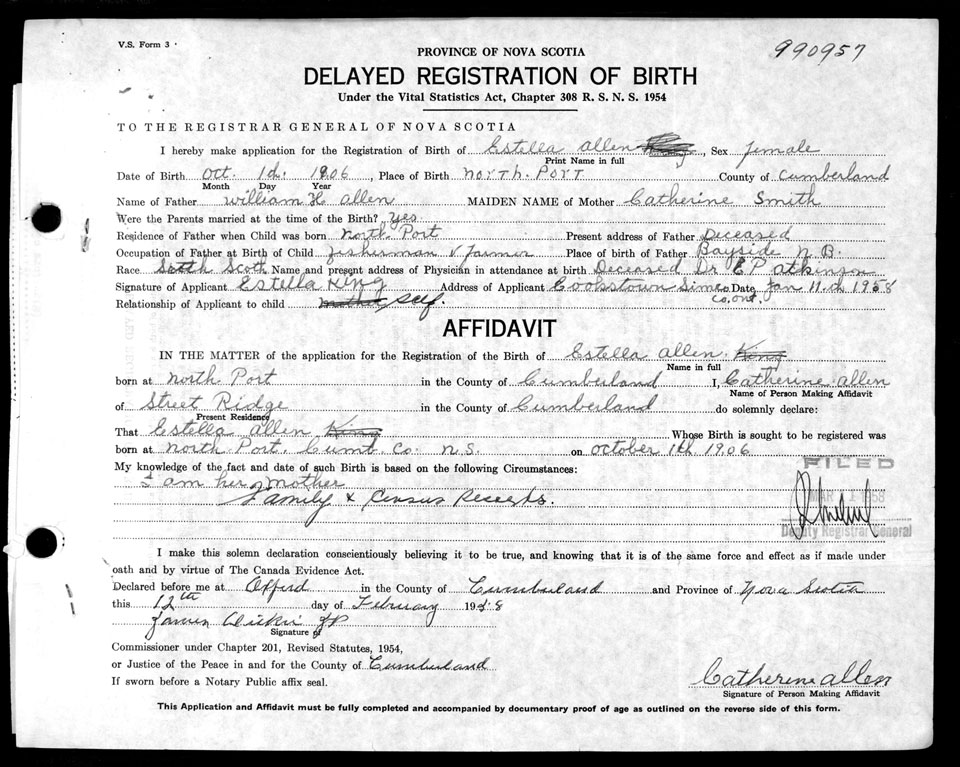 V.S. Form 3
990957
PROVINCE OF NOVA SCOTIA
DELAYED REGISTRATION OF BIRTH
Under the Vital Statistics Act, Chapter 308 R. S. N. S. 1954
TO THE REGISTRAR GENERAL OF NOVA SCOTIA
I hereby make application for the Registration of Birth of Estella allen , Sex female
Print Name in full
Date of Birth Oct. 1d. 1906 , Place of Birth North. Port County of Cumberland
Month Day Year
Name of Father William H allen MAIDEN NAME of Mother Catherine Smith
Were the Parents married at the time of the Birth? Yes
Residence of Father when Child was born North Port Present address of Father Deceased
Occupation of Father at Birth of Child Fisherman & Farmer Place of birth of Father Bayside N B.
Race Scotch Name and present address of Physician in attendance at birth Deceased Dr E P atkinson
Signature of Applicant Estella King Address of Applicant Cookstown Simco Date Jan 11 d 1958
Co, ont.
Relationship of Applicant to child mother self.
AFFIDAVIT
IN THE MATTER of the application for the Registration of the Birth of Estella allen. King
Name in full
born at North Port in the County of Cumberland I, Catherine allen
Name of Person Making Affidavit
of Street Ridge in the County of Cumberland do solemnly declare:
Present Residence
That Estella allen King Whose Birth is sought to be registered was
born at North Port. Cumb. Co. N.S. on October 1th 1906
My knowledge of the fact and date of such Birth is based on the following Circumstances:
FILED
I am her mother
Family & Census Records.
Deputy Registrar General
I make this solemn declaration conscientiously believing it to be true, and knowing that it is of the same force and effect as if made under
oath and by virtue of The Canada Evidence Act.
Declared before me at Oxford in the County of Cumberland and Province of Nova Scotia
this 12th day of February 1958
J P
Signature of
Commissioner under Chapter 201, Revised Statutes, 1954,
or Justice of the Peace in and for the County of Cumberland
If sworn before a Notary Public affix seal.
Catherine allen
Signature of Person Making Affidavit
This Application and Affidavit must be fully completed and accompanied by documentary proof of age as outlined on the reverse side of this form.